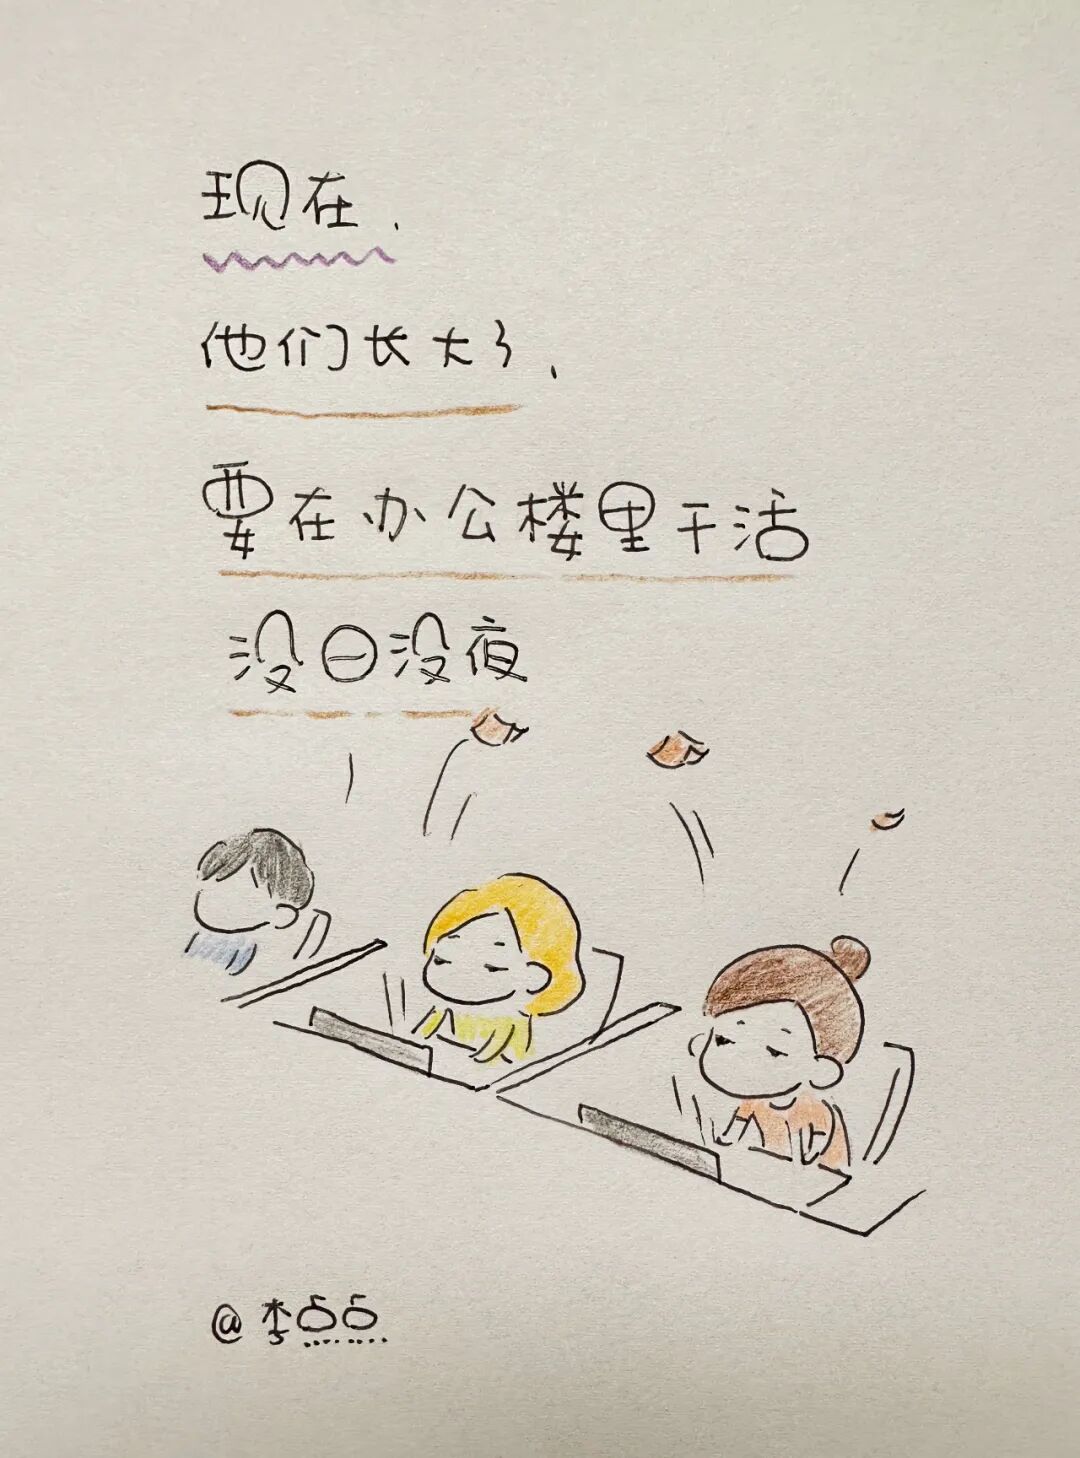 现在、
他们长大了、
要在办公楼里干活
没日没夜
@李点点